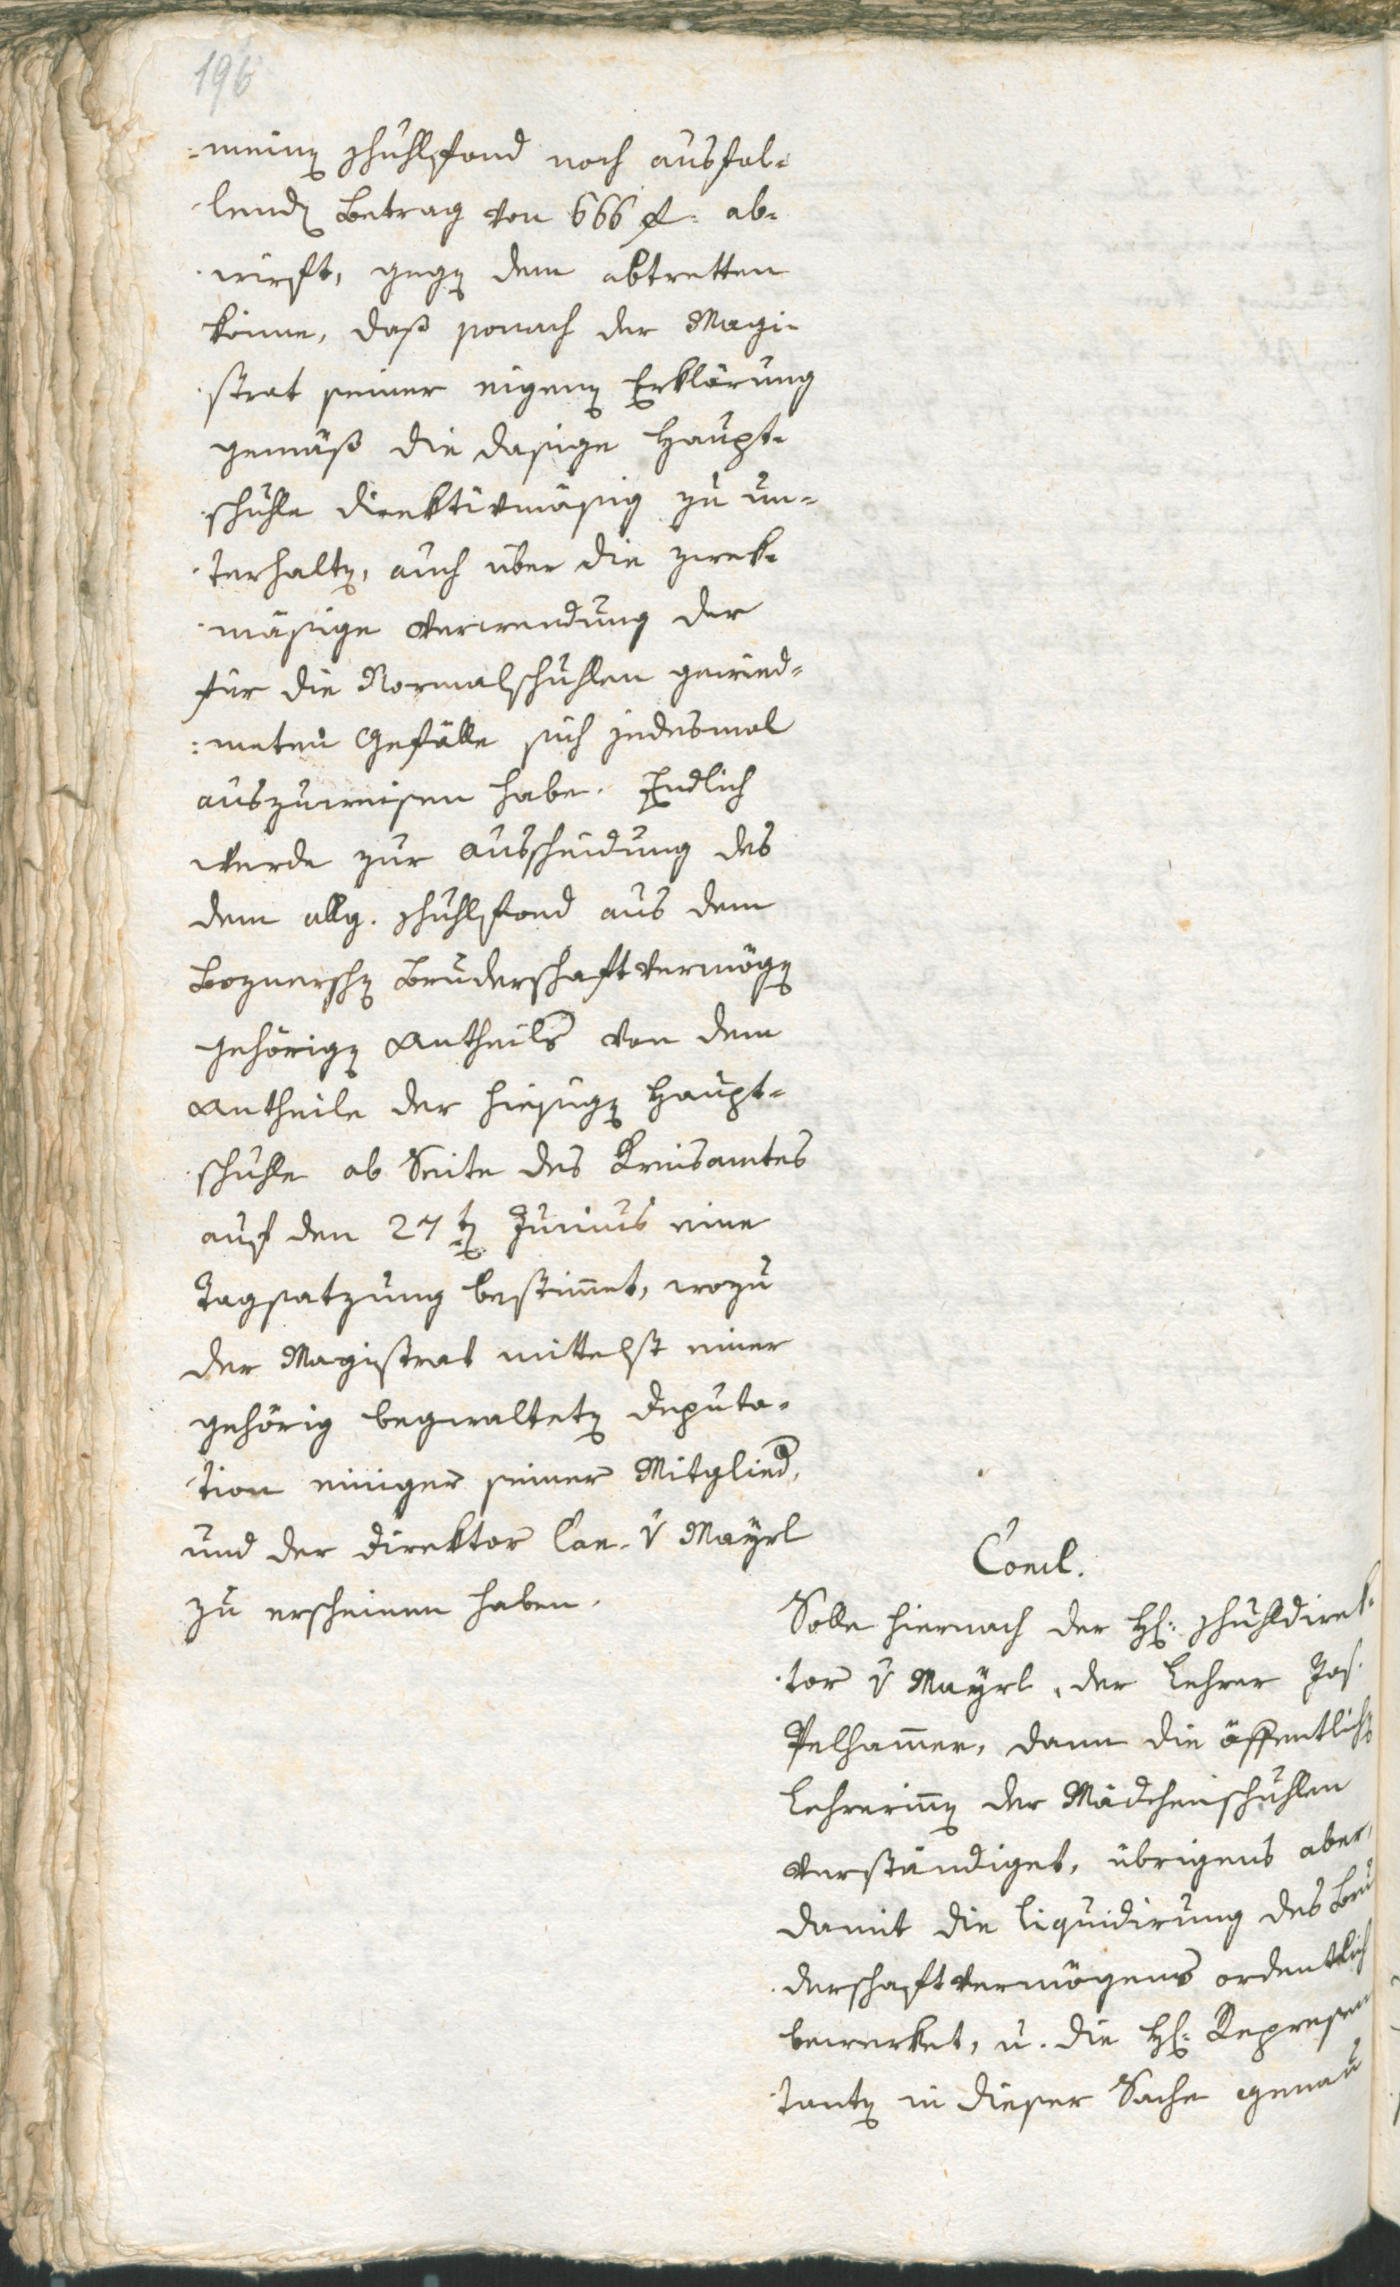 196
=meinen schuhlfond noch ausfal=
lenden Betrag von 666 f. ab=
wirft, gegen dem abtretten
könne, daß sonach der Magi=
strat seiner eigenen Erklärung
gemäß die dasige Haupt=
schuhle direktivmäsig zu un=
terhalten, auch über die zwek=
mäsige Verwendung der
für die Normalschuhlen gewied=
=meten Gefälle sich jedesmal
auszuweisen habe. Endlich
werde zur Ausscheidung des
dem allg. schuhlfond aus dem
Boznerschen Bruderschaftvermögen
gehörigen Antheils von dem
Antheile der hiesigen Haupt=
schuhle ab Seite des Kreisamtes
auf den 27ten Junius eine
Tagsatzung bestimmt, wozu
der Magistrat mittelst einer
gehörig begwalteten Deputa=
tion einiger seiner Mitglied.
und der Direktor Can. v Mayrl
zu erscheinen haben.
Concl.
Solle hiernach der H: schuhldirek=
tor v Mayrl, der Lehrer Jos.
Pelhammer, dann die öffentliche
Lehrerinnen der Mädchenschuhlen
verständiget, übrigens aber,
damit die Liquidirung des Bru
derschaftvermögens ordentlich
bewerket, u. die H: Represen
tanten in dieser Sache genau